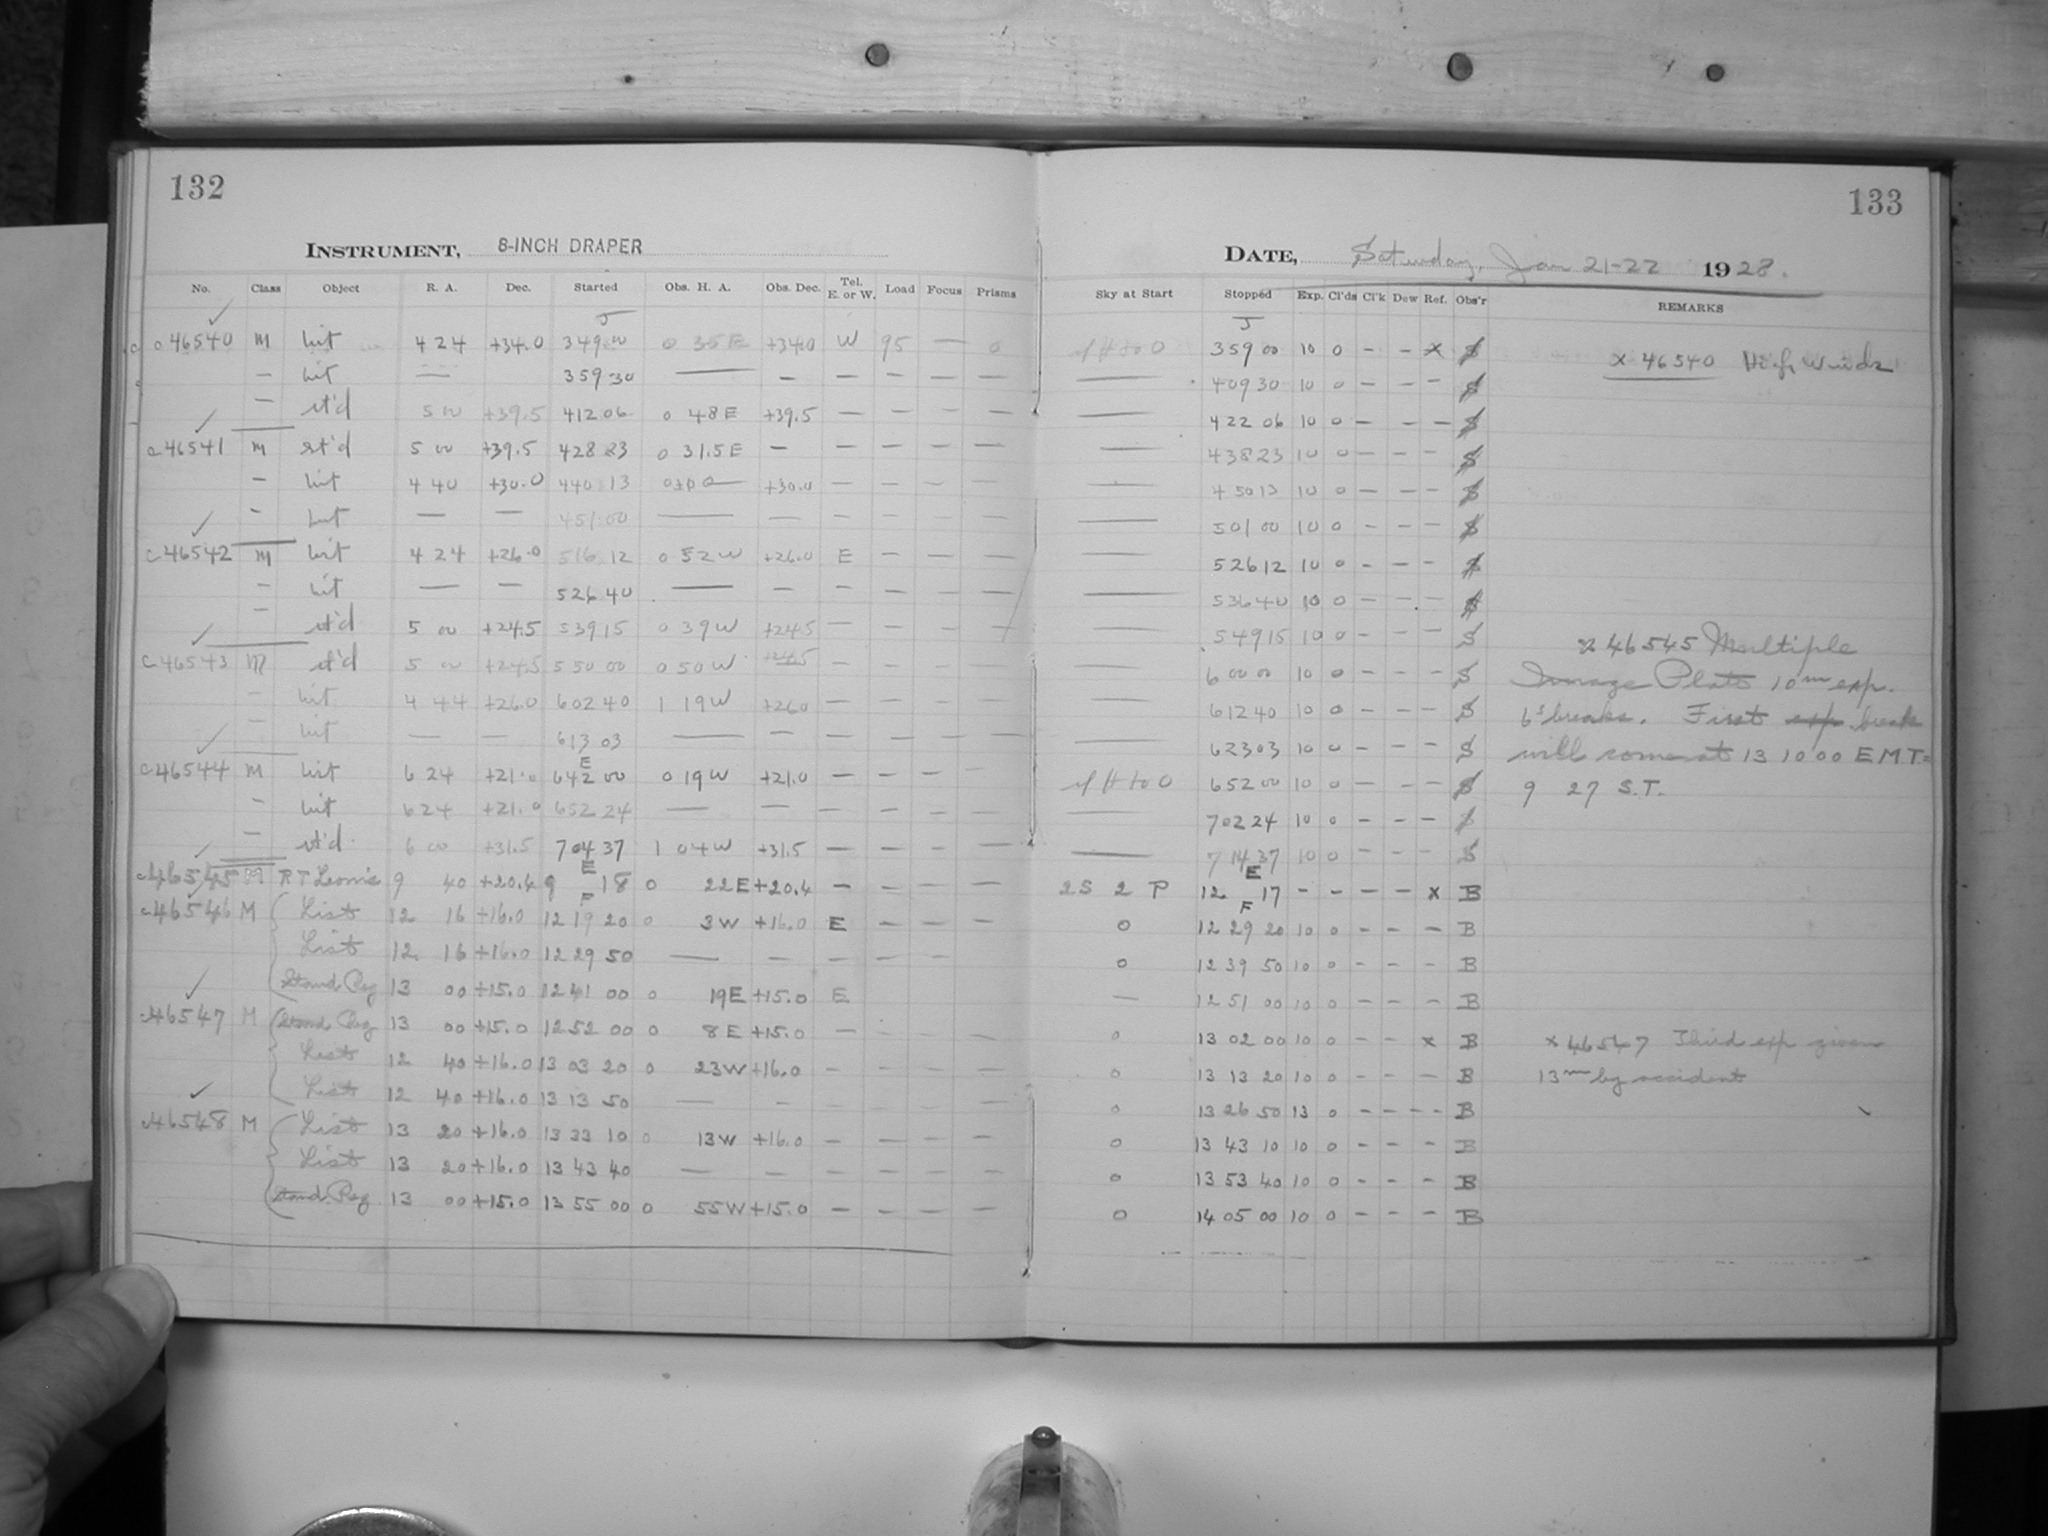 132
INSTRUMENT, 8-INCH DRAPER
No. Class Object R. A. Dec. Started Obs. H. A. Obs. Dec. Tel. E. or W. Load Focus Prisms
J
c 46540 M list 4 24 +34.0 3 49 00 0 35 E +34.0 W 95 — 0
— list — 3 59 30 — — — — — —
— st'd 5 00 +39.5 4 12 06 0 48 E +39.5 — — — —
c 46541 M st'd 5 00 +39.5 4 28 23 0 31.5 E — — — — —
— list 4 40 +30.0 4 40 13 +30.0 — — — —
— list — — 4 51 00 — — — — — —
c 46542 M list 4 24 +26.0 5 16 12 0 52 W +26.0 E — — —
— list — — 5 26 40 — — — — — —
— st'd 5 00 +24.5 5 39 15 0 39 W +24.5 — — — —
c 46543 M st'd 5 00 +24.5 5 50 00 0 50 W +24.5 — — — —
— list 4 44 +26.0 6 02 40 1 19 W +26.0 — — — —
— list — — 6 13 03 — — — — — —
E
c 46544 M list 6 24 +21.0 6 42 00 0 19 W +21.0 — — — —
— list 6 24 +21.0 6 52 24 — — — — — —
— st'd 6 00 +31.5 7 04 37 1 04 W +31.5 — — — —
E
c 46545 M RT Leonis 9 40 +20.4 9 18 0 22 E +20.4 — — — —
F
c 46546 M List 12 16 +16.0 12 19 20 0 3 W +16.0 E — — —
List 12 16 +16.0 12 29 50 — — — — — —
Stand Reg 13 00 +15.0 12 41 00 0 19 E +15.0 E
c 46547 M Stand Reg 13 00 +15.0 12 52 00 0 8 E +15.0 — — — —
List 12 40 +16.0 13 03 20 0 23 W +16.0 — — — —
List 12 40 +16.0 13 13 50 — — — —
c 46548 M List 13 20 +16.0 13 33 10 0 13 W +16.0 — — — —
List 13 20 +16.0 13 43 40 — — — — — —
Stand Reg 13 00 +15.0 13 55 00 0 55 W +15.0 — — — —
133
DATE, Saturday, Jan 21-22 1928.
Sky at Start Stopped Exp. Cl'ds Cl'k Dew Ref. Obs'r REMARKS
J
3 59 00 10 0 – – x S x 46540 High Winds
— 4 09 30 10 0 – – – S
— 4 22 06 10 0 – – – S
— 4 38 23 10 0 – – – S
— 4 50 13 10 0 – – – S
— 5 01 00 10 0 – – – S
— 5 26 12 10 0 – – – S
— 5 36 40 10 0 – – – S
— 5 49 15 10 0 – – – S x 46545 Multiple
— 6 00 00 10 0 – – – S Image Plate 10m exp.
— 6 12 40 10 0 – – – S 6s breaks. First exp break
— 6 23 03 10 0 – – – S will come at 13 10 00 E M T =
6 52 00 10 0 – – – S 9 27 S.T.
7 02 24 10 0 – – – S
— 7 14 37 10 0 – – – S
E
2 S 2 P 12 17 – – – – x B
F
0 12 29 20 10 0 – – – B
0 12 39 50 10 0 – – – B
— 12 51 00 10 0 – – – B
0 13 02 00 10 0 – – x B x 46547 Third exp given
0 13 13 20 10 0 – – – B 13m by accident
0 13 26 50 13 0 – – – B
0 13 43 10 10 0 – – – B
0 13 53 40 10 0 – – – B
0 14 05 00 10 0 – – – B